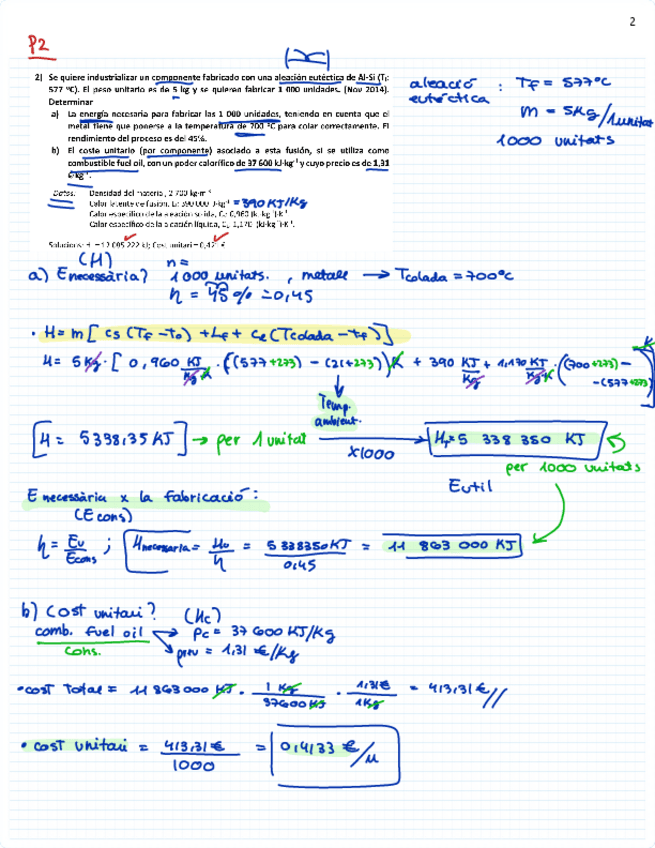 2
P2
2) Se quiere industrializar un componente fabricado con una aleación eutéctica de Al-Si (Tf:
577 °C). El peso unitario es de 5 kg y se quieren fabricar 1 000 unidades. (Nov 2014).
Determinar
a) La energía necesaria para fabricar las 1 000 unidades, teniendo en cuenta que el
metal tiene que ponerse a la temperatura de 700 °C para colar correctamente. El
rendimiento del proceso es del 45%.
b) El coste unitario (por componente) asociado a esta fusión, si se utiliza como
combustible fuel oil, con un poder calorífico de 37 600 kJ·kg⁻¹ y cuyo precio es de 1,31
€·kg⁻¹.
Datos: Densidad del material, 2 700 kg·m⁻³
Calor latente de fusión, Lf: 390 000 J·kg⁻¹ = 390 KJ/Kg
Calor específico de la aleación sólida, Cs: 0,960 (kJ·kg⁻¹)·K⁻¹
Calor específico de la aleación líquida, CL: 1,170 (kJ·kg⁻¹)·K⁻¹.
Solucions: H = 12 005 222 kJ; Cost unitari = 0,421 €
aleació eutéctica : Tf = 577°C
m = 5Kg/1unitat
1000 unitats
(H) n =
a) Enecessària? 1000 unitats. , metall → Tcolada = 700°C
η = 45% = 0,45
· H = m [ cs (Tf - to) + Lf + ce (Tcolada - tf) ]
H = 5 Kg · [ 0,960 KJ/Kg·K · ((577+273) - (21+273)) K + 390 KJ/Kg + 1,170 KJ/Kg·K · ((700+273) - -(577+273)) K ]
Temp. ambient.
[H = 5338,35 KJ] → per 1 unitat x1000 → 5 338 350 KJ
per 1000 unitats
E util
E necessària x la fabricació:
(E cons)
η = Eu/Econs ; Hnecessaria = Hu/η = 5338350 KJ/0,45 = 11 863 000 KJ
b) Cost unitari? (Hc)
comb. Fuel oil → Pc = 37 600 KJ/Kg
cons. → preu = 1,31 €/Kg
· cost Total = 11 863 000 KJ · 1 Kg/37600 KJ · 1,31€/1Kg = 413,31 €//
· cost unitari = 413,31 €/1000 = 0,4133 €/u